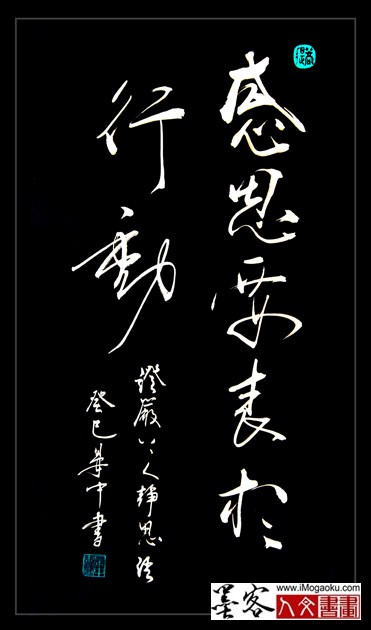 感恩要表於
行動
證嚴上人靜思語
癸巳華中書
墨客
www.iMogaoku.com
人文書畫